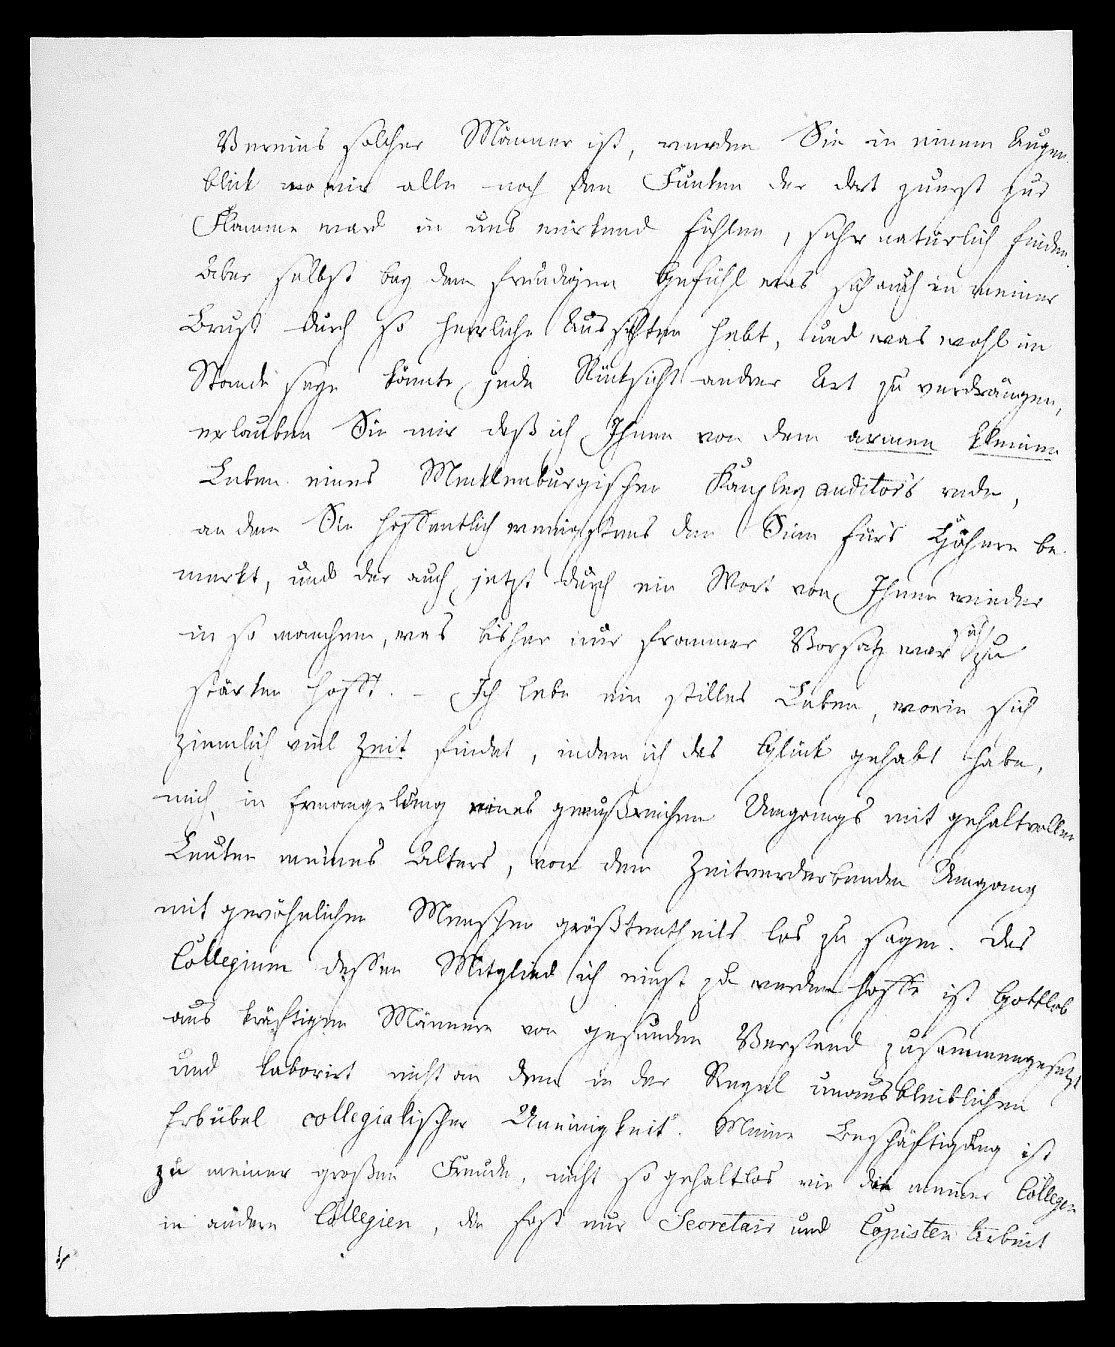 Vereins solcher Männer ist, werden Sie in einem Augen-
blick wo wir alle noch den Funken der dort zuerst zur
Flamme ward in uns wirkend fühlen, sehr natürlich finden.
Aber selbst bey dem freudigen Gefühl was sich auch in meiner
Brust durch so herrliche Aussichten hebt, und was wohl im
Stande seyn könnte jede Rücksicht andrer Art zu verdrängen,
erlauben Sie mir daß ich Ihnen von dem armen kleinen
Leben eines Mecklenburgischen Kanzley auditor's rede,
an dem Sie hoffentlich wenigstens den Sinn für's Höhere be-
merkt, und der auch jetzt durch ein Wort von Ihnen wieder
in so manchem, was bisher nur frommer Vorsatz war sich zu
stärken hofft. – Ich lebe ein stilles Leben, worin sich
ziemlich viel Zeit findet, indem ich das Glück gehabt habe,
mich, in Ermangelung eines genußreichen Umgangs mit gehaltvollen
Leuten meines Alters, von dem zeitverderbenden Umgang
mit gewöhnlichen Menschen größtentheils los zu sagen. Das
Collegium dessen Mitglied ich einst zu werden hoffe ist Gottlob
aus kräftigen Männern von gesunden Verstand zusammengesetzt
und laborirt nicht an dem in der Regel unausbleiblichen
Erbübel collegialischer Uneinigkeit. Meine Beschäftigung ist
zu meiner großen Freude, nicht so gehaltlos wie die meiner Collegen
in andern Collegien, die fast nur Secretair und Copisten Arbeit